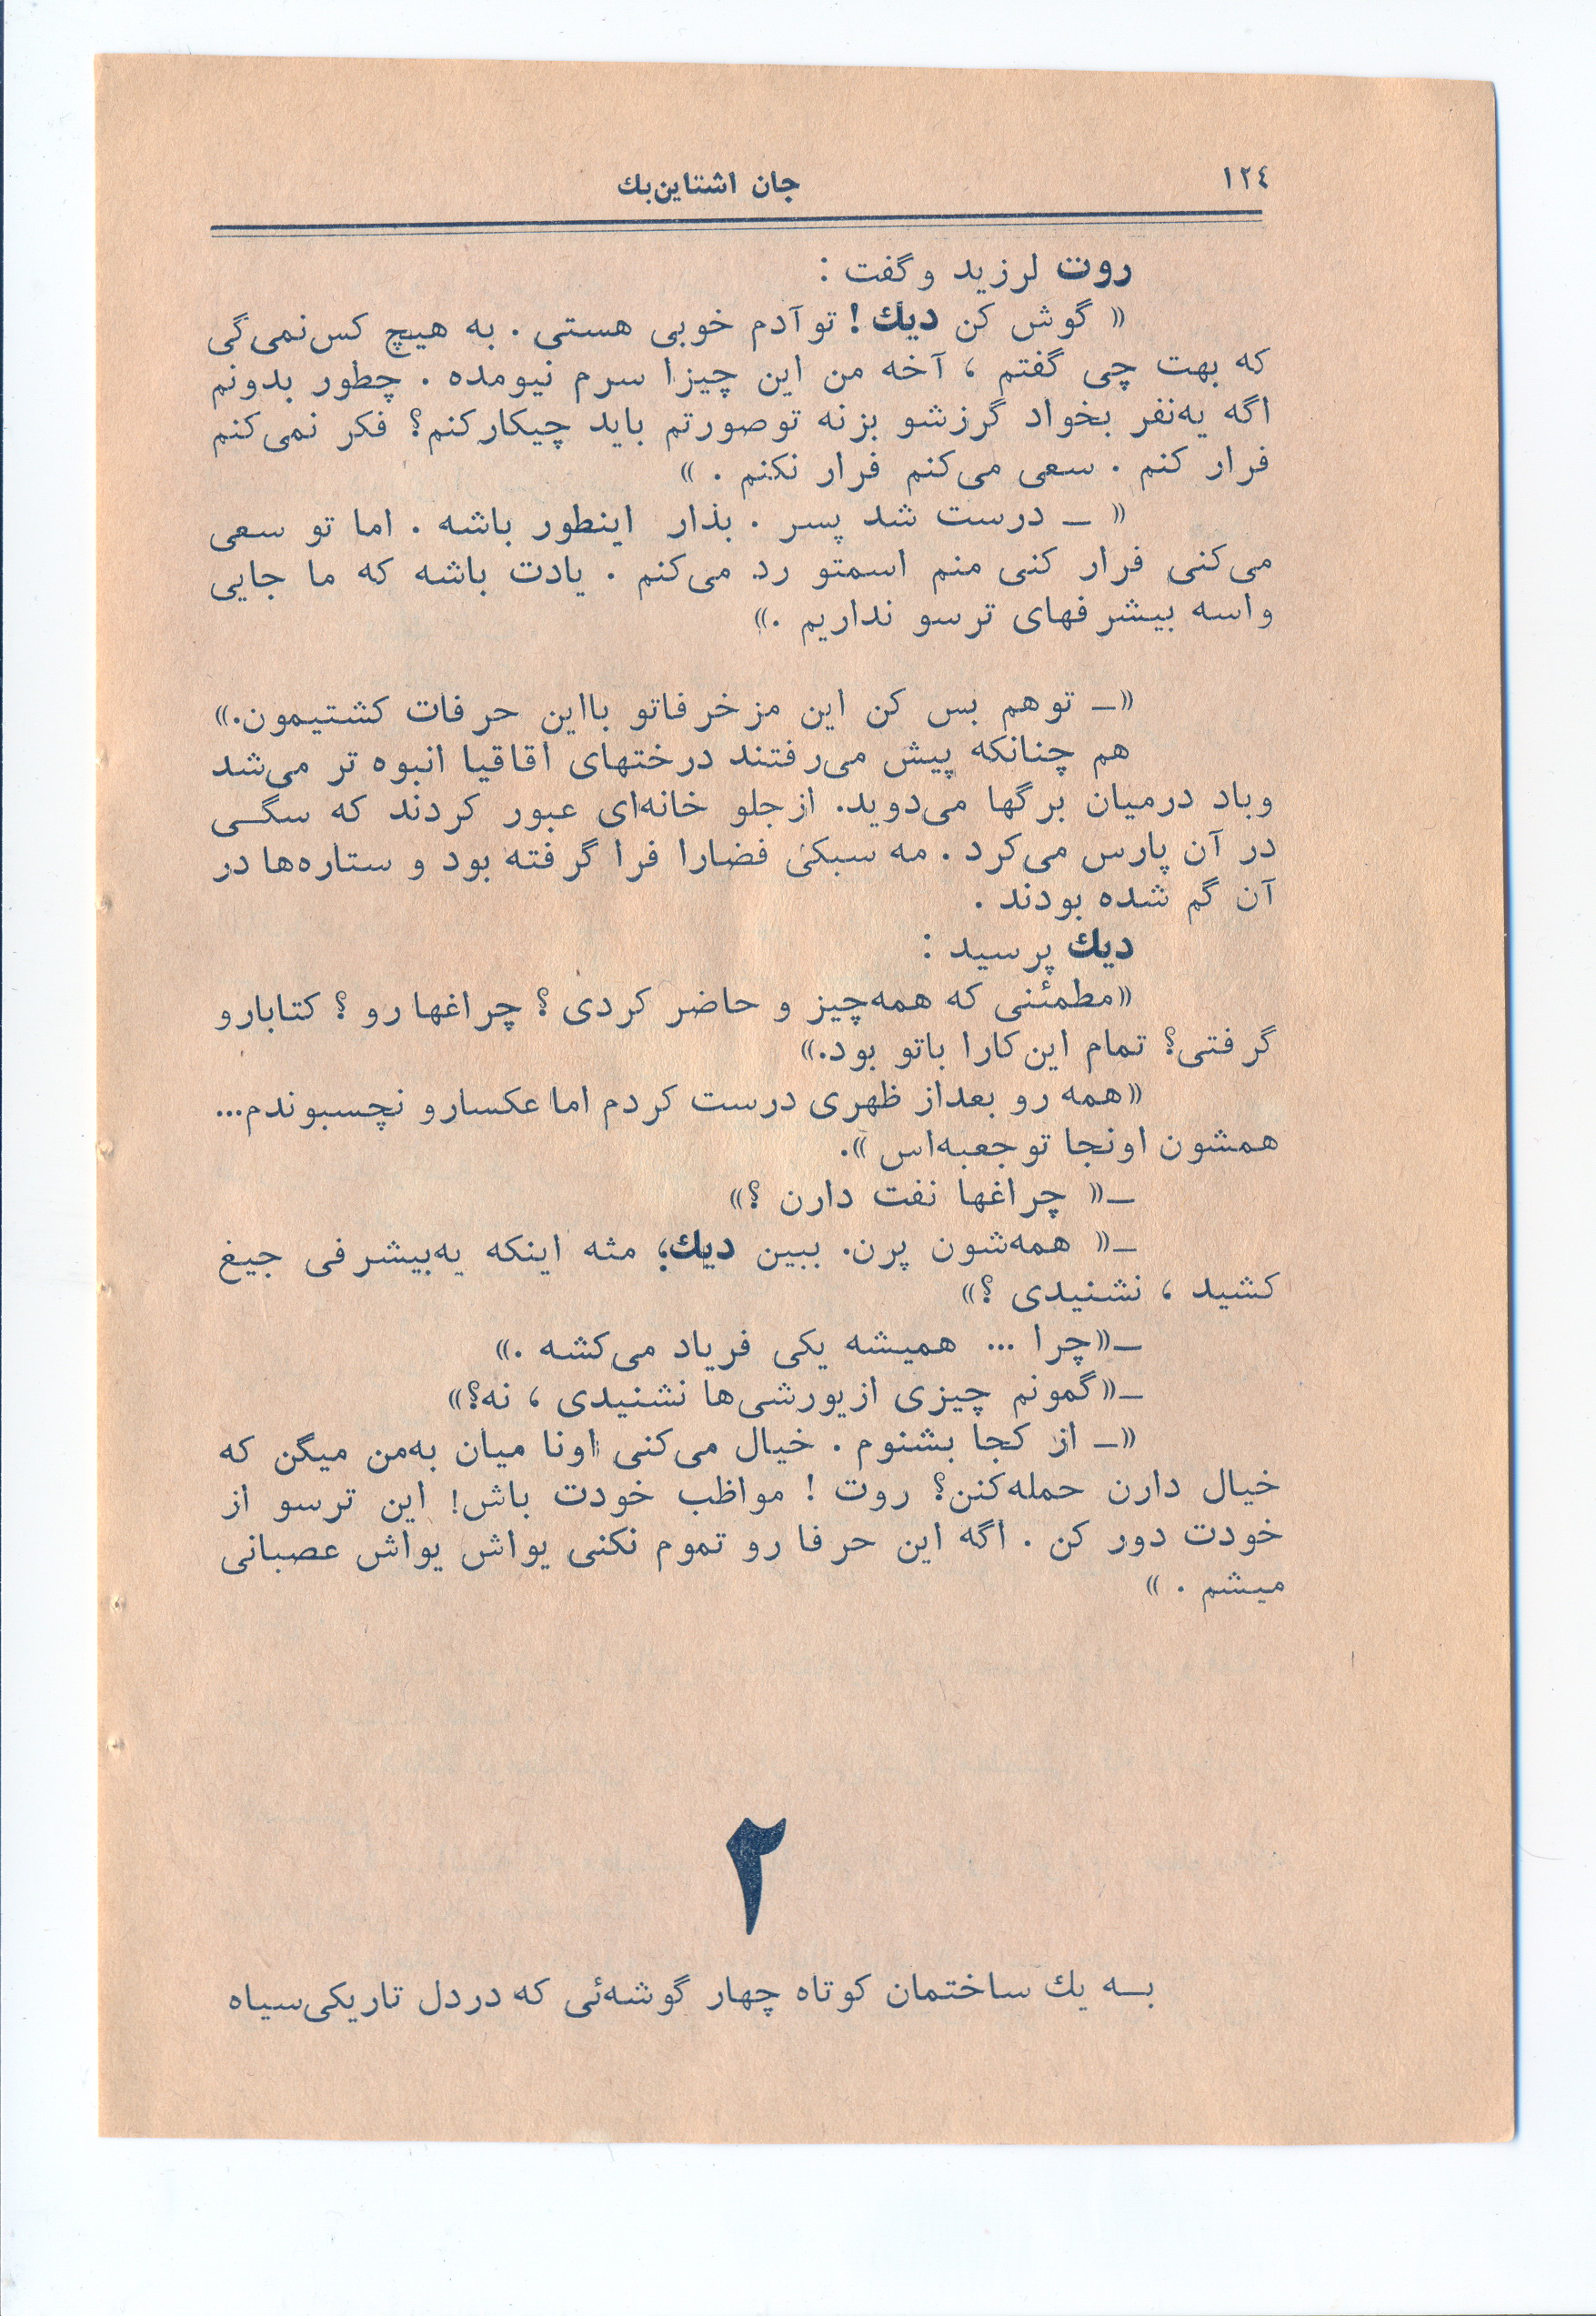 ١٢٤
جان اشتاین‌بك
روت لرزید و گفت :
« گوش کن دیك ! تو آدم خوبی هستی . به هیچ کس نمی‌گی
که بهت چی گفتم ، آخه من این چیزا سرم نیومده . چطور بدونم
اگه یه‌نفر بخواد گرزشو بزنه تو صورتم باید چیکار کنم؟ فکر نمی‌کنم
فرار کنم . سعی می‌کنم فرار نکنم . »
« ـ درست شد پسر . بذار اینطور باشه . اما تو سعی
می‌کنی فرار کنی منم اسمتو رد می‌کنم . یادت باشه که ما جایی
واسه بیشرفهای ترسو نداریم .»
«ـ تو هم بس کن این مزخرفاتو بااین حرفات کشتیمون.»
هم چنانکه پیش می‌رفتند درختهای اقاقیا انبوه تر می‌شد
وباد درمیان برگها می‌دوید. ازجلو خانه‌ای عبور کردند که سگـی
در آن پارس می‌کرد . مه سبکی فضارا فرا گرفته بود و ستاره‌ها در
آن گم شده بودند .
دیك پرسید :
«مطمئنی که همه‌چیز و حاضر کردی ؟ چراغها رو ؟ کتابارو
گرفتی؟ تمام این‌کارا باتو بود.»
«همه رو بعداز ظهری درست کردم اما عکسارو نچسبوندم...
همشون اونجا تو جعبه‌اس ».
ـ« چراغها نفت دارن ؟»
ـ« همه‌شون پرن. ببین دیك، مثه اینکه یه‌بیشرفی جیغ
کشید ، نشنیدی ؟»
ـ«چرا ... همیشه یکی فریاد می‌کشه .»
ـ«گمونم چیزی ازیورشی‌ها نشنیدی ، نه؟»
«ـ از کجا بشنوم . خیال می‌کنی اونا میان به‌من میگن که
خیال دارن حمله‌کنن؟ روت ! مواظب خودت باش! این ترسو از
خودت دور کن . اگه این حرفا رو تموم نکنی یواش یواش عصبانی
میشم . »
٢
بـه یك ساختمان کوتاه چهار گوشه‌ئی که دردل تاریکی‌سیاه